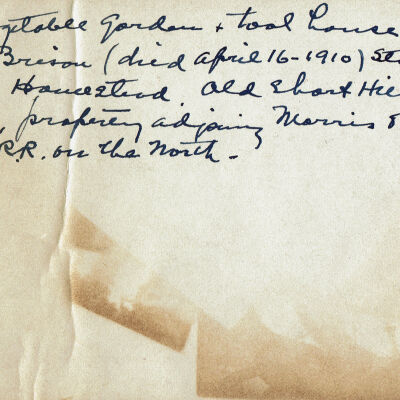 getable Garden + tool house
Brison (died April 16-1910) St
Homestead. Old Short Hi
property adjoining Morris &
R.R. on the North -